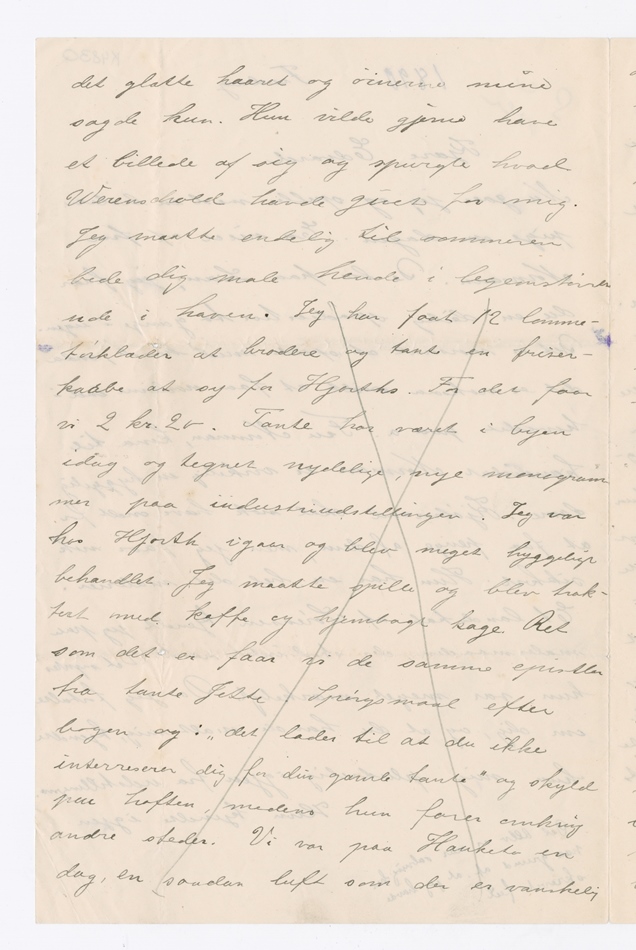 det glatte haaret og öinene mine
sagde hun. Hun vilde gjerne have
et billede af sig og spurgte hvad
Werenskiold havde givet for mig.
Jeg maatte endelig til sommeren
bede dig male hende i legemstörrel
ude i haven. Jeg har faat 12 lomme-
törklæder at brodere og tante en friser-
kaabe at sy for Hjorths. For det faar
vi 2 kr. 20. Tante har været i byen
idag og tegnet nydelige, nye monogram
mer paa industriudstillingen. Jeg var
hos Hjorth igaar og blev meget hyggeligt
behandlet. Jeg maatte spille og blev trak-
tert med kaffe og hjembagt kage. Ret
som det er faar vi de samme epistler
fra tante Jette. Spörgsmaal efter
bogen og: „det lader til at du ikke
interreserer dig for din gamle tante" og skyld
paa hoften, medens hun farer omkring
andre steder. Vi var paa Hauketo en
dag, en saadan luft som der er vanskelig